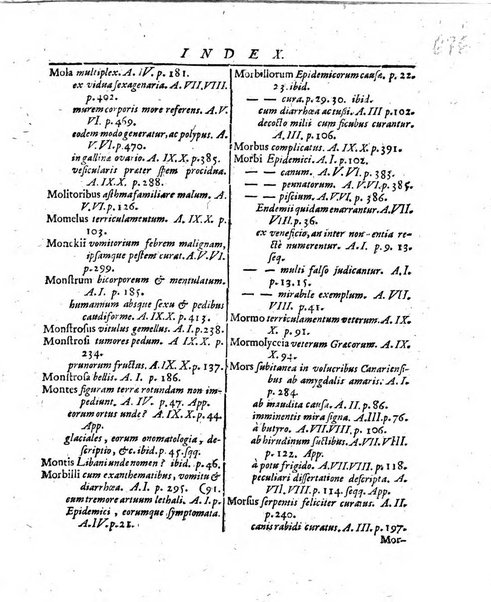 INDEX.
Mola multiplex. A. IV. p. 181.
ex vidua sexagenaria. A. VII. VIII.
p. 402.
murem corporis more referens. A. V.
VI. p. 469.
eodem modo generatur, ac polypus. A.
V. VI. p. 470.
in gallinæ ovario. A. IX. X. p. 385.
vesicularis præter spem procidua.
A. IX. X. p. 288.
Molitoribus asthma familiare malum. A.
V. VI. p. 126.
Momelus terriculamentum. A. IX. X. p.
103.
Monckii vomitorium febrem malignam,
ipsamque pestem curat. A. V. VI.
p. 299.
Monstrum bicorporeum & mentulatum.
A. I. p. 185.
humannum absque sexu & pedibus
caudiforme. A. IX. X. p. 413.
Monstrosus vitulus gemellus. A. I. p. 238.
Monstrosi tumores pedum. A. IX. X. p.
234.
prunorum fructus. A. IX. X. p. 137.
Monstrosa bellis. A. I. p. 186.
Montes figuram terræ rotundam non im-
pediunt. A. IV. p. 47. App.
eorum ortus unde? A. IX. X. p. 44.
App.
glaciales, eorum onomatologia, de-
scriptio, &c. ibid. p. 45. sqq.
Montis Libani unde nomen? ibid. p. 46.
Morbilli cum exanthematibus, vomitu &
diarrhœa. A. I. p. 295. (91.
cum tremore artuum lethali. A. I. p.
Epidemici, eorumque symptomata.
A. IV. p. 21.
Morbillorum Epidemicorum causæ, p. 22.
23. ibid.
— — cura. p. 29. 30. ibid.
cum diarrhœa actusi. A. III p. 102.
decocto milii cum ficubus curantur.
A. III. p. 106.
Morbus complicatus. A. IX. X. p. 391.
Morbi Epidemici. A. I. p. 102.
— — canum. A. V. VI. p. 385.
— — pennatorum. A. V. VI. p. 385.
— — piscium. A. V. VI. p. 386.
Endemii quidam enarrantur. A. VII.
VIII. p. 36.
ex veneficio, an inter non-entia re-
ctè numerentur. A. I. p. 9. 13.
seq.
— — multi falso judicantur. A. I.
p. 13. 15.
— — mirabile exemplum. A. VII.
VIII. p. 48.
Mormo terriculamentum veterum. A. IX.
X. p. 91.
Mormolyccia veterum Græcorum. A. IX.
X. p. 94.
Mors subitanea in volucribus Canariensi-
bus ab amygdalis amaris. A. I. p.
284.
ab inaudita causa. A. II. p. 86.
imminentis mira signa. A. III. p. 76.
à butyro. A. VII. VIII. p. 106.
ab hirudinum suctibus. A. VII. VIII.
p. 122. App.
à potu frigido. A. VII. VIII. p. 118.
peculiari dissertatione descripta. A.
VII. VIII. p. 114. seqq. App.
Morsus serpentis feliciter curatus. A. II.
p. 240.
canis rabidi curatus. A. III. p. 197.
Mor-